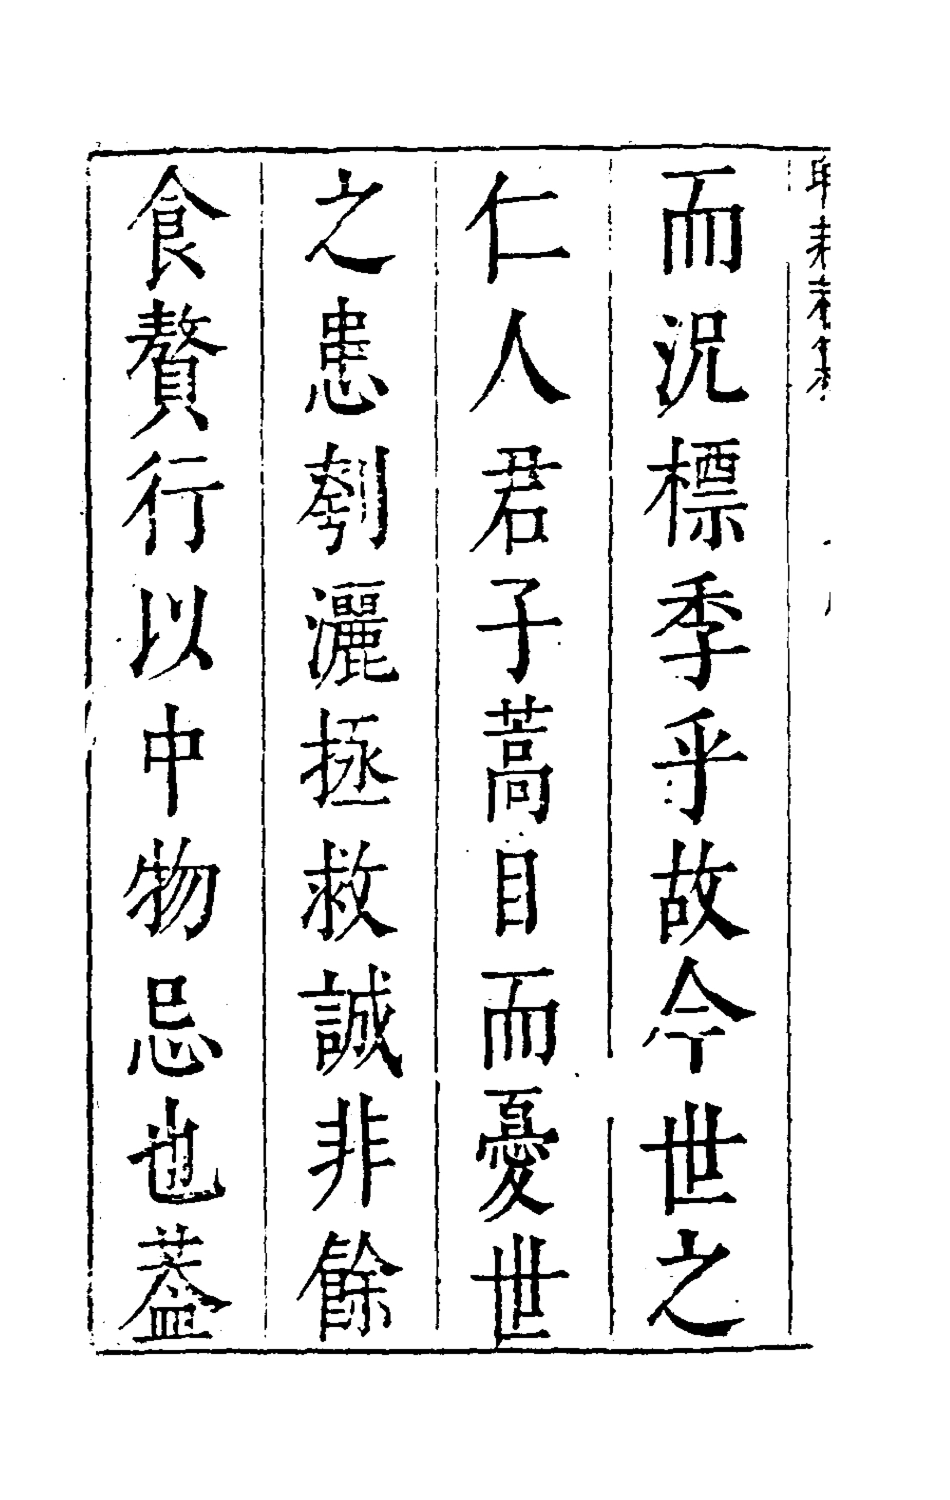 而況標季乎故今世之
仁人君子蒿目而憂世
之患刳灑拯救誠非餘
食贅行以中物忌也葢